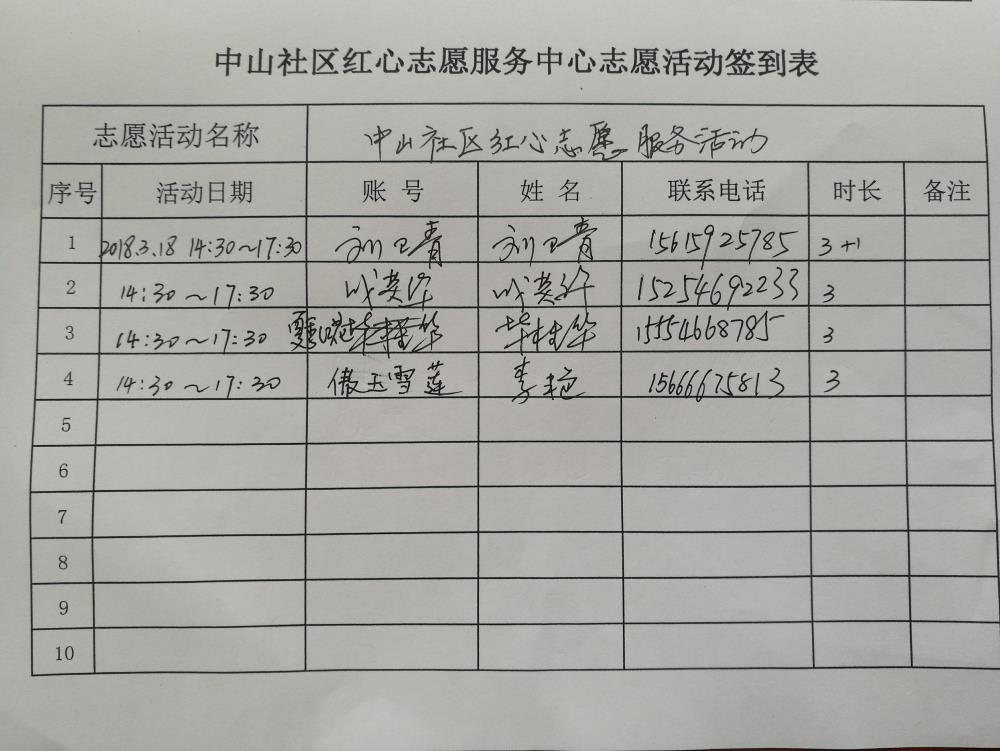 中山社区红心志愿服务中心志愿活动签到表
志愿活动名称 中山社区红心志愿服务活动
序号 活动日期 账号 姓名 联系电话 时长 备注
1 2018.3.18 14:30~17:30 刘卫青 刘卫青 15615925785 3+1
2 14:30~17:30 15254692233 3
3 14:30~17:30 毕桂华 15554668785 3
4 14:30~17:30 傲玉雪莲 李艳 15666675813 3
5
6
7
8
9
10